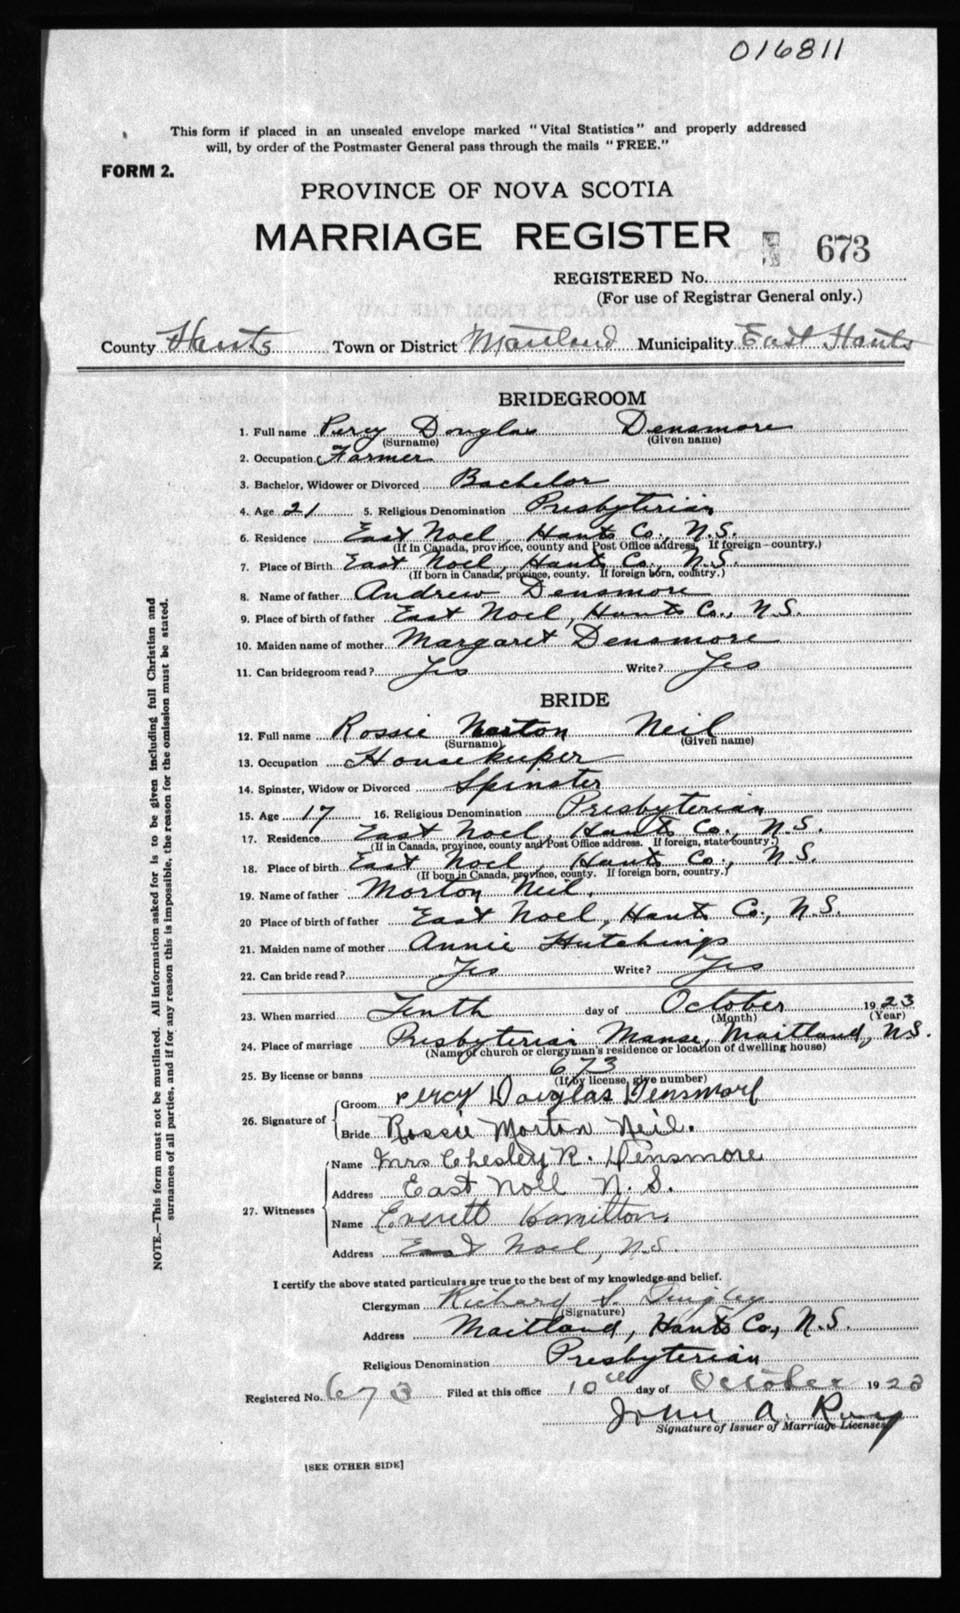 016811
This form if placed in an unsealed envelope marked "Vital Statistics" and properly addressed
will, by order of the Postmaster General pass through the mails "FREE."
FORM 2.
PROVINCE OF NOVA SCOTIA
MARRIAGE REGISTER
673
REGISTERED No.
(For use of Registrar General only.)
County Hants Town or District Maitland Municipality East Hants
BRIDEGROOM
1. Full name Percy Douglas Densmore
(Surname) (Given name)
2. Occupation Farmer
3. Bachelor, Widower or Divorced Bachelor
4. Age 21 5. Religious Denomination Presbyterian
6. Residence East Noel, Hants Co., N.S.
(If in Canada, province, county and Post Office address. If foreign-country.)
7. Place of Birth East Noel, Hants Co., N.S.
(If born in Canada, province, county. If foreign born, country.)
8. Name of father Andrew Densmore
9. Place of birth of father East Noel, Hants Co., N.S.
10. Maiden name of mother Margaret Densmore
11. Can bridegroom read? Yes Write? Yes
BRIDE
12. Full name Rossie Morton Neil
(Surname) (Given name)
13. Occupation Housekeeper
14. Spinster, Widow or Divorced Spinster
15. Age 17 16. Religious Denomination Presbyterian
17. Residence East Noel, Hants Co., N.S.
(If in Canada, province, county and Post Office address. If foreign, state country.)
18. Place of birth East Noel, Hants Co., N.S.
(If born in Canada, province, county. If foreign born, country.)
19. Name of father Morton Neil.
20 Place of birth of father East Noel, Hants Co., N.S.
21. Maiden name of mother Annie Hutchings
22. Can bride read? Yes Write? Yes
23. When married Tenth day of October 1923
(Month) (Year)
24. Place of marriage Presbyterian Manse, Maitland, N.S.
(Name of church or clergyman's residence or location of dwelling house)
25. By license or banns 673
(If by license, give number)
26. Signature of Groom Percy Douglas Densmore
Bride Rossie Morton Neil.
27. Witnesses Name Mrs Chesley R. Densmore
Address East Noel N.S.
Name Everett Hamilton,
Address East Noel, N.S.
I certify the above stated particulars are true to the best of my knowledge and belief.
Clergyman Richard S. Tingley
(Signature)
Address Maitland, Hants Co., N.S.
Religious Denomination Presbyterian
Registered No. 673 Filed at this office 10th day of October 1923
John A. Roy
Signature of Issuer of Marriage Licenses
[SEE OTHER SIDE]
NOTE.—This form must not be mutilated. All information asked for is to be given including full Christian and
surnames of all parties, and if for any reason this is impossible, the reason for the omission must be stated.